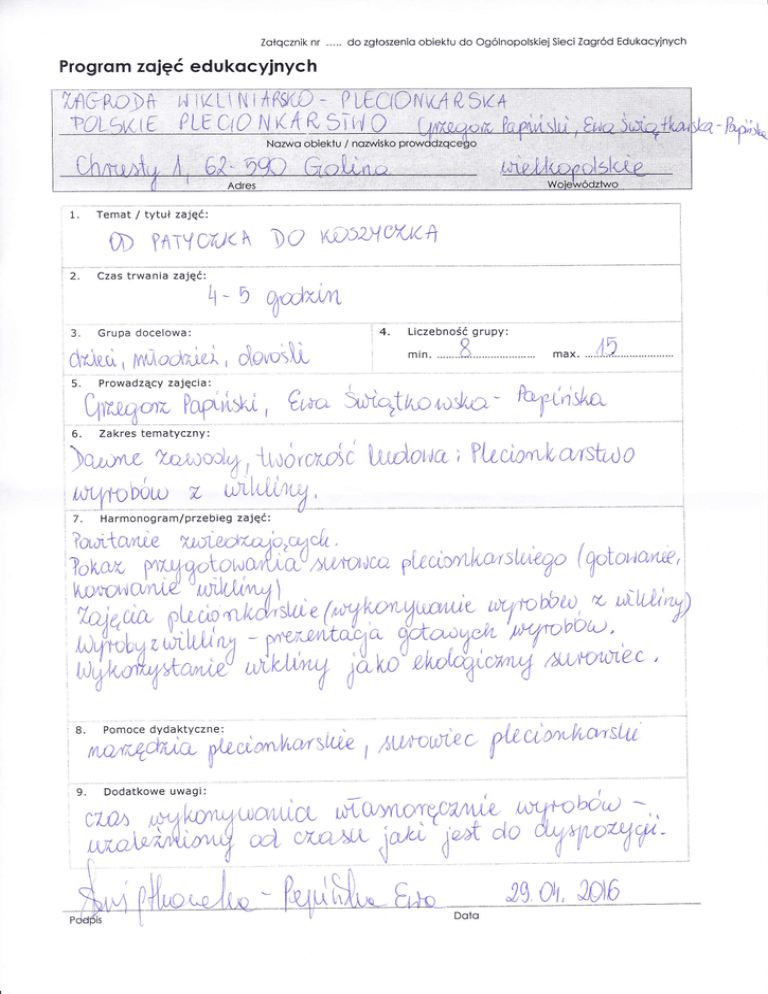 Załącznik nr ..... do zgłoszenia obiektu do Ogólnopolskiej Sieci Zagród Edukacyjnych
Program zajęć edukacyjnych
ZAGRODA WIKLINIARSKO - PLECIONKARSKA
POLSKIE PLECIONKARSTWO Grzegorz Papiński, Ewa Świątkowska-Papińska
Nazwa obiektu / nazwisko prowadzącego
Chrusty 1, 62-590 Golina wielkopolskie
Adres Województwo
1. Temat / tytuł zajęć:
OD PATYCZKA DO KOSZYCZKA
2. Czas trwania zajęć:
4-5 godzin
3. Grupa docelowa: 4. Liczebność grupy:
dzieci, młodzież, dorośli min. 8 max. 15
5. Prowadzący zajęcia:
Grzegorz Papiński, Ewa Świątkowska-Papińska
6. Zakres tematyczny:
Dawne zawody, twórczość ludowa i Plecionkarstwo
wyrobów z wikliny.
7. Harmonogram/przebieg zajęć:
Powitanie zwiedzających.
Pokaz przygotowania surowca plecionkarskiego (gotowanie,
korowanie wikliny)
Zajęcia plecionkarskie (wykonywanie wyrobów z wikliny)
Wyroby z wikliny - prezentacja gotowych wyrobów.
Wykorzystanie wikliny jako ekologiczny surowiec.
8. Pomoce dydaktyczne:
narzędzia plecionkarskie, surowiec plecionkarski
9. Dodatkowe uwagi:
czas wykonywania własnoręcznie wyrobów -
uzależniony od czasu jaki jest do dyspozycji.
Świątkowska - Papińska Ewa 29.04.2016
Podpis Data